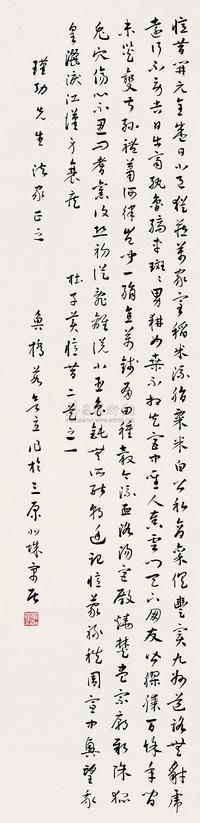 憶昔開元全盛日小邑猶藏萬家室稻米流脂粟米白公私倉廩俱豐實九州道路無豺虎
遠行不勞吉日出齊紈魯縞車班班男耕女桑不相失宮中聖人奏雲門天下朋友皆膠漆百餘年間
未災變叔孫禮樂蕭何律豈聞一絹直萬錢有田種穀今流血洛陽宮殿燒焚盡宗廟新除狐
兔穴傷心不忍問耆舊復恐初從亂離說小臣魯鈍無所能朝廷記憶蒙祿秩周宣中興望我
皇灑淚江漢身衰疾 杜子美憶昔二首之一
瑾功先生法家正之 於三原